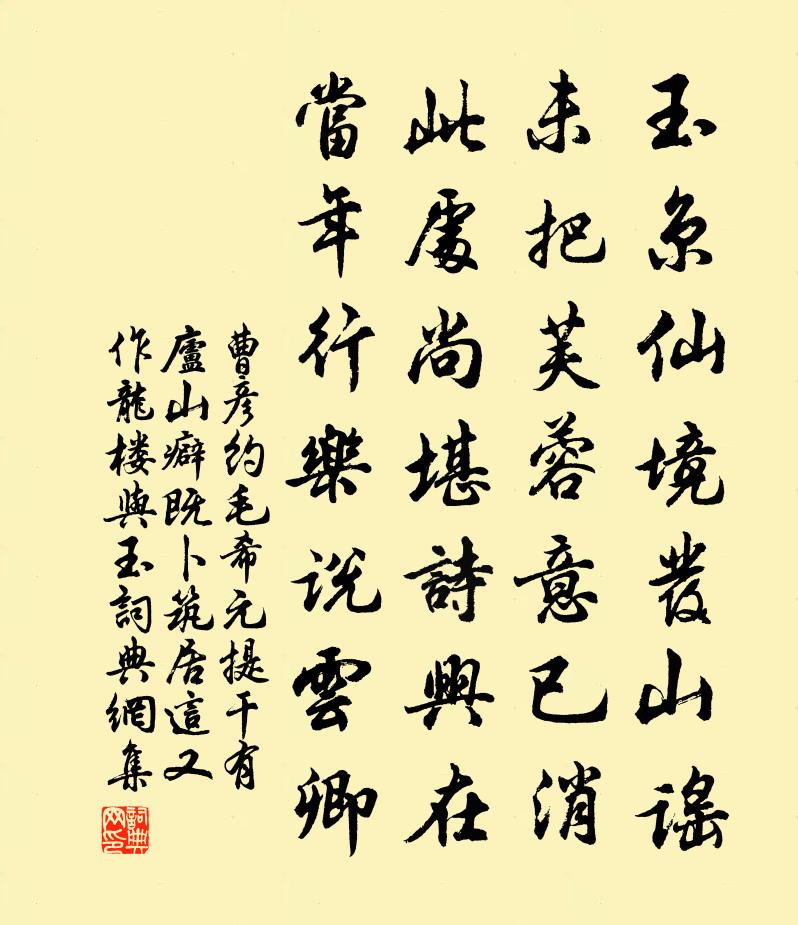 玉京仙境發山謠
未把芙蓉意已消
此處尚堪詩興在
當年行樂說雲卿
曹彥約毛希元提干有
廬山癖既卜筑居這又
作龍楼與玉詞典網集
詞典
网印